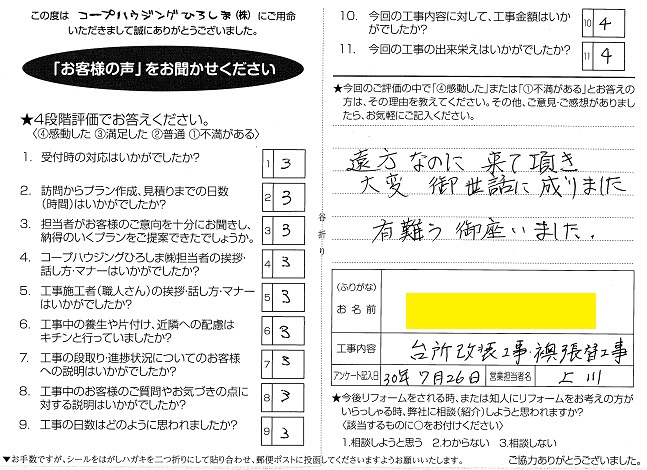 この度は コープハウジングひろしま(株) にご用命
いただきまして誠にありがとうございました。
「お客様の声」をお聞かせください
★4段階評価でお答えください。
〈④感動した ③満足した ②普通 ①不満がある〉
1. 受付時の対応はいかがでしたか?
1 3
2. 訪問からプラン作成、見積りまでの日数
(時間)はいかがでしたか?
2 3
3. 担当者がお客様のご意向を十分にお聞きし、
納得のいくプランをご提案できたでしょうか。
3 3
4. コープハウジングひろしま㈱担当者の挨拶・
話し方・マナーはいかがでしたか?
4 3
5. 工事施工者(職人さん)の挨拶・話し方・マナー
はいかがでしたか?
5 3
6. 工事中の養生や片付け、近隣への配慮は
キチンと行っていましたか?
6 3
7. 工事の段取り・進捗状況についてのお客様
への説明はいかがでしたか?
7 3
8. 工事中のお客様のご質問やお気づきの点に
対する説明はいかがでしたか?
8 3
9. 工事の日数はどのように思われましたか?
9 3
▼お手数ですが、シールをはがしハガキを二つ折りにして貼り合わせ、郵便ポストに投函してくださいますようお願いいたします。
谷折り
10. 今回の工事内容に対して、工事金額はいか
がでしたか?
10 4
11. 今回の工事の出来栄えはいかがでしたか?
11 4
★今回のご評価の中で「④感動した」または「①不満がある」とお答えの
方は、その理由を教えてください。その他、ご意見・ご感想がありまし
たら、お気軽にご記入ください。
遠方なのに 来て頂き
大変 御世話に成りました
有難う 御座いました.
(ふりがな)
お名前
工事内容 台所改装工事・襖張替工事
アンケート記入日 30年7月26日 営業担当者名 上川
★今後リフォームをされる時、または知人にリフォームをお考えの方が
いらっしゃる時、弊社に相談(紹介)しようと思われますか?
〈該当するものに○をお付けください〉
1.相談しようと思う 2.わからない 3.相談しない
ご協力ありがとうございました。